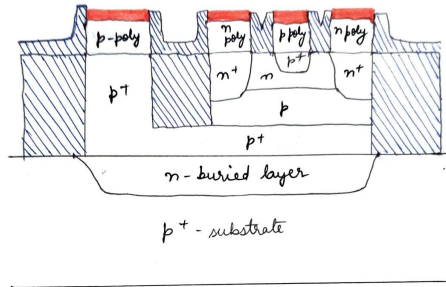 p-poly
n poly
p poly
n poly
p+
n+
n
p+
n+
p
p+
n-buried layer
p+ - substrate